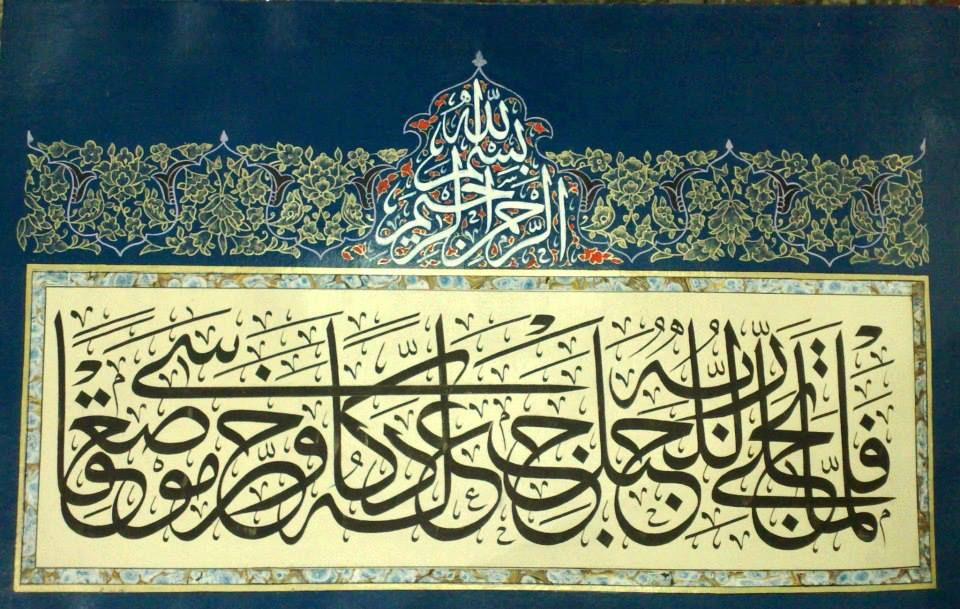 بسم الله الرحمن الرحيم
فَلَمَّا تَجَلَّىٰ رَبُّهُ لِلْجَبَلِ جَعَلَهُ دَكًّا وَخَرَّ مُوسَىٰ صَعِقًا